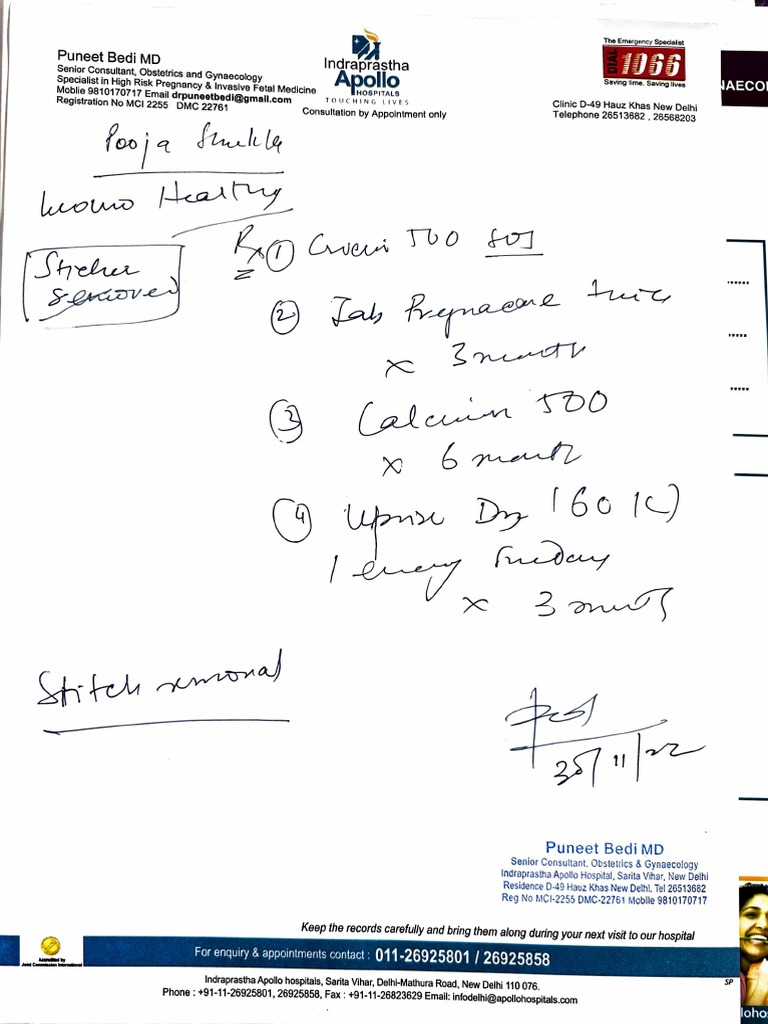 Puneet Bedi MD
Senior Consultant, Obstetrics and Gynaecology
Specialist in High Risk Pregnancy & Invasive Fetal Medicine
Moblie 9810170717 Email drpuneetbedi@gmail.com
Registration No MCI 2255 DMC 22761
Indraprastha
Apollo
HOSPITALS
TOUCHING LIVES
Consultation by Appointment only
The Emergency Specialist
DIAL 1066
Saving time. Saving lives
Clinic D-49 Hauz Khas New Delhi
Telephone 26513682 , 26568203
NAECO
Pooja Shukla
Wound Healthy
Sticher
removed
Rx ① Crocin 500 SOS
② Tab Pregnacare
x 3 month
③ Calcium 500
x 6 month
④ Uprise D3 (60 K)
1 every Sunday
x 3 month
Stitch removal
/11/22
Puneet Bedi MD
Senior Consultant, Obstetrics & Gynaecology
Indraprastha Apollo Hospital, Sarita Vihar, New Delhi
Residence D-49 Hauz Khas New Delhi. Tel 26513682
Reg No MCI-2255 DMC-22761 Moblie 9810170717
Keep the records carefully and bring them along during your next visit to our hospital
Accredited by
Joint Commission International
For enquiry & appointments contact : 011-26925801 / 26925858
SP
Indraprastha Apollo hospitals, Sarita Vihar, Delhi-Mathura Road, New Delhi 110 076.
Phone : +91-11-26925801, 26925858, Fax : +91-11-26823629 Email: infodelhi@apollohospitals.com